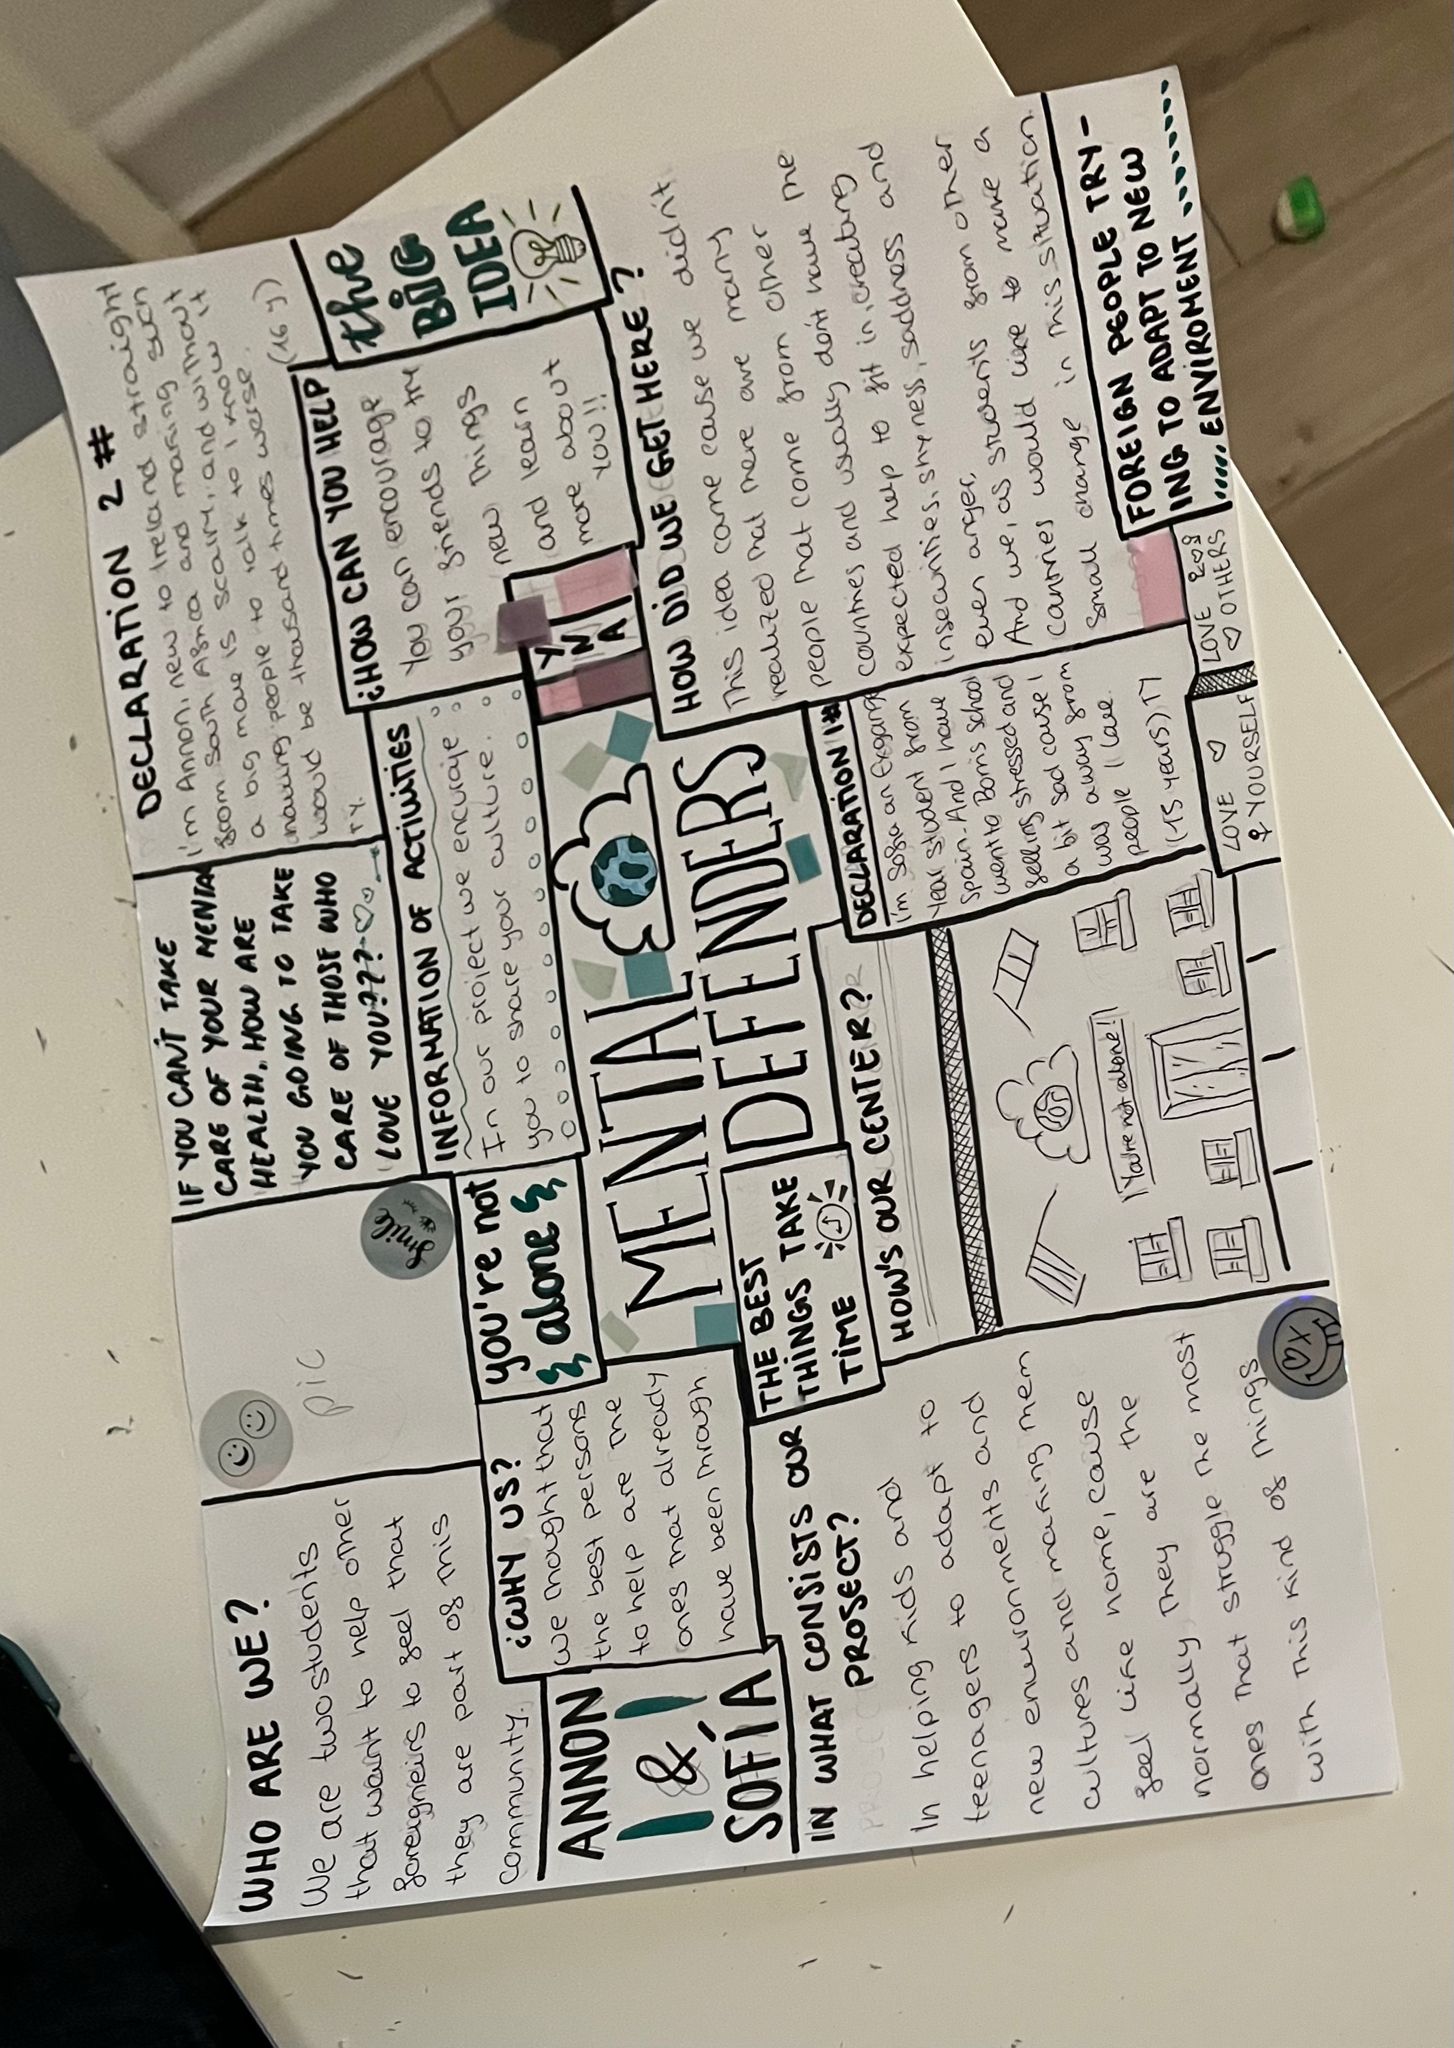 WHO ARE WE?
We are two students
that want to help other
foreigneirs to feel that
they are part of this
community.
pic
Smile
IF YOU CAN'T TAKE
CARE OF YOUR MENTA
HEALTH, HOW ARE
YOU GOING TO TAKE
CARE OF THOSE WHO
LOVE YOU???
DECLARATION 2 #
I'm Annon, new to Ireland straight
from South Africa and making such
a big move is scary, and without
knowing people to talk to I know it
would be thousand times worse.
(16 y)
TY.
ANNON
&
SOFÍA
¿WHY US?
We thought that
the best persons
to help are the
ones that already
have been through
you're not
alone
INFORMATION OF ACTIUITIES
In our project we encuraje
you to share your culture.
¿HOW CAN YOU HELP
You can encourage
your friends to try
new things
and learn
more about
you!!
the
BIG
IDEA
MENTAL
DEFENDERS
Y
N
A
HOW DID WE GET HERE?
This idea came cause we didn't
realized that there are many
people that come from other
countries and usually don't have the
expected help to fit in, creating
insecurities, shyness, saddness and
even anger.
And we, as students from other
cantries would like to make a
small change in this situation.
IN WHAT CONSISTS OUR
PROSECT?
In helping kids and
teenagers to adapt to
new enviromments and
cultures and making them
feel like home, cause
normally they are the
ones that struggle the most
with this kind of things
THE BEST
THINGS TAKE
TIME
HOW'S OUR CENTER?
¡You're not alone!
DECLARATION 1#
I'm Sofia an Exgang
year student from
Spain. And I have
went to Borris school
feeling stressed and
a bit sad cause I
was away from
people I love
(15 years) TY
LOVE
YOURSELF
LOVE
OTHERS
FOREIGN PEOPLE TRY-
ING TO ADAPT TO NEW
ENVIROMENT